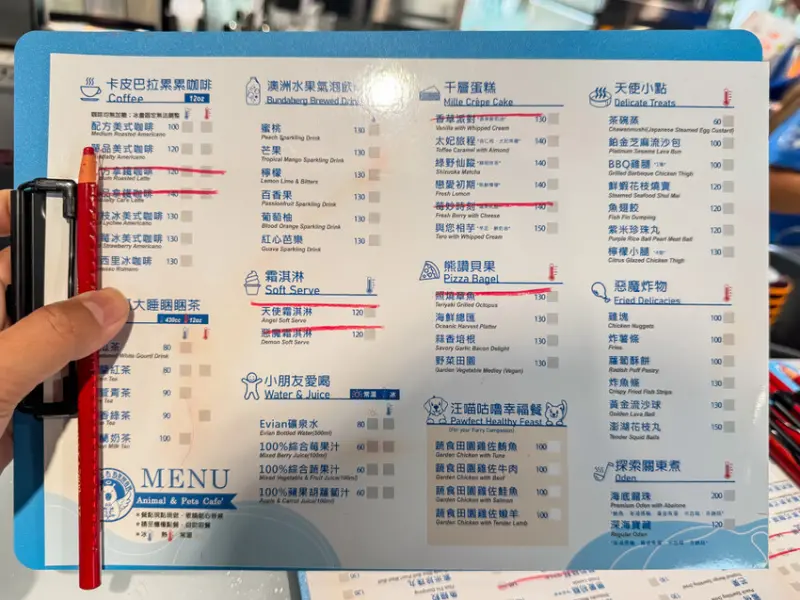 卡皮巴拉累累咖啡
Coffee 12oz
配方美式咖啡 100
Medium Roasted Americano
品美式咖啡
120
140
枝冰美式咖啡 130
莓冰美式咖啡 130
西里冰咖啡 130
大睡睏睏茶
430cc 12oz
80
紅茶 80
青茶 80
香綠茶 90
奶茶 100
MENU
Animal & Pets Cafe'
澳洲水果氣泡飲
Bundaberg Brewed Drin
蜜桃
Peach Sparkling Drink
芒果
Tropical Mango Sparkling Drink
檸檬
Lemon Lime & Bitters
百香果
Passionfruit Sparkling Drink
葡萄柚
Blood Orange Sparkling Drink
紅心芭樂
Guava Sparkling Drink
130
130
130
130
130
130
霜淇淋
Soft Serve
天使霜淇淋 120
Angel Soft Serve
惡魔霜淇淋 120
Demon Soft Serve
小朋友愛喝
Water & Juice
Evian礦泉水 80
Evian Bottled Water(500ml)
100%綜合莓果汁 60
Mixed Berry Juice(100ml)
100%綜合蔬果汁 60
Mixed Vegetable & Fruit Juice(100ml)
100%蘋果胡蘿蔔汁 60
Apple & Carrot Juice(100ml)
千層蛋糕
Mille Crêpe Cake
香草派對 130
Vanilla with Whipped Cream
太妃旅程 140
Toffee Caramel with Almond
綠野仙蹤 140
Shizuoka Matcha
戀愛初期 140
Fresh Lemon
莓妙時刻 140
Fresh Berry with Cheese
與您相芋 150
Taro with Whipped Cream
熊讚貝果
Pizza Bagel
照燒章魚 130
Teriyaki Grilled Octopus
海鮮總匯 130
Oceanic Harvest Platter
蒜香培根 130
Savory Garlic Bacon Delight
野菜田園 130
Garden Vegetable Medley (Vegan)
汪喵咕嚕幸福餐
Pawfect Healthy Feast
(For your Furry Companion)
蔬食田園雞佐鮪魚 100
Garden Chicken with Tuna
蔬食田園雞佐牛肉 100
Garden Chicken with Beef
蔬食田園雞佐鮭魚 100
Garden Chicken with Salmon
蔬食田園雞佐嫩羊 100
Garden Chicken with Tender Lamb
天使小點
Delicate Treats
茶碗蒸 60
Chawanmushi(Japanese Steamed Egg Custard)
鉑金芝麻流沙包 100
Platinum Sesame Lava Bun
BBQ雞腿 100
Grilled Barbecue Chicken Thigh
鮮蝦花枝燒賣 120
Steamed Seafood Shui Mai
魚翅餃 120
Fish Fin Dumping
紫米珍珠丸 120
Purple Rice Ball Pearl Meat Ball
檸檬小腿 120
Citrus Glazed Chicken Thigh
惡魔炸物
Fried Delicacies
雞塊 100
Chicken Nuggets
炸薯條 100
Fries
蘿蔔酥餅 100
Radish Puff Pastry
炸魚條 130
Crispy Fried Fish Strips
黃金流沙球 130
Golden Lava Ball
澎湖花枝丸 150
Tender Squid Balls
探索關東煮
Oden
海底關珠 200
Premium Oden with Abalone
深海寶藏 120
Regular Oden